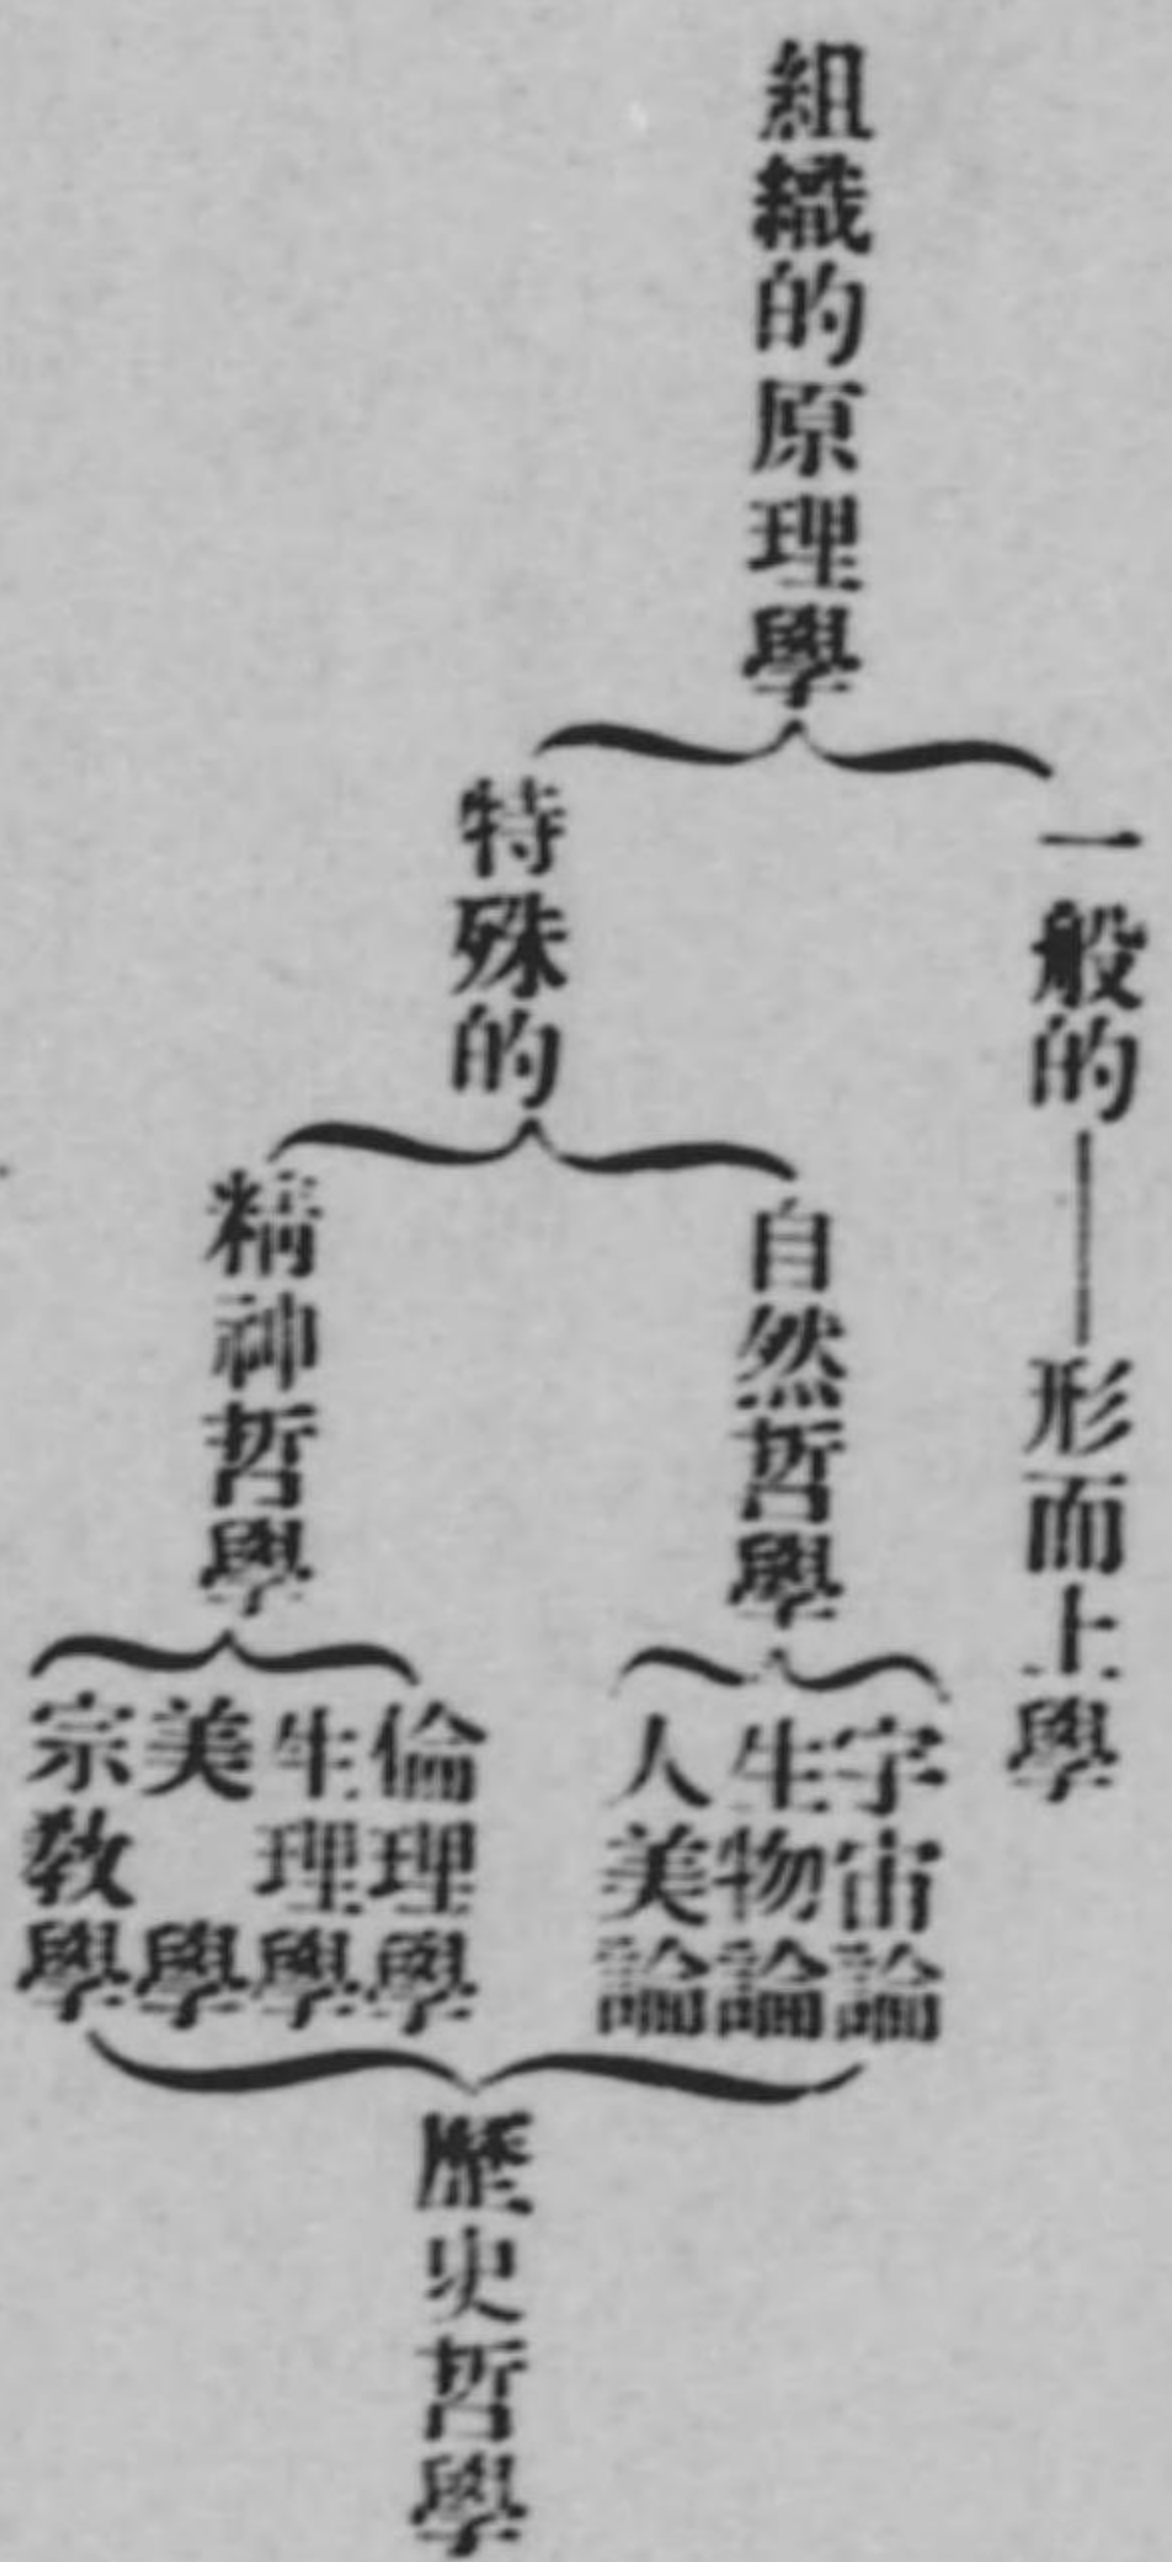 組織的原理學
一般的──形而上學
特殊的
自然哲學
宇宙論
生物論
人美論
精神哲學
倫理學
生理學
美學
宗教學
歷史哲學